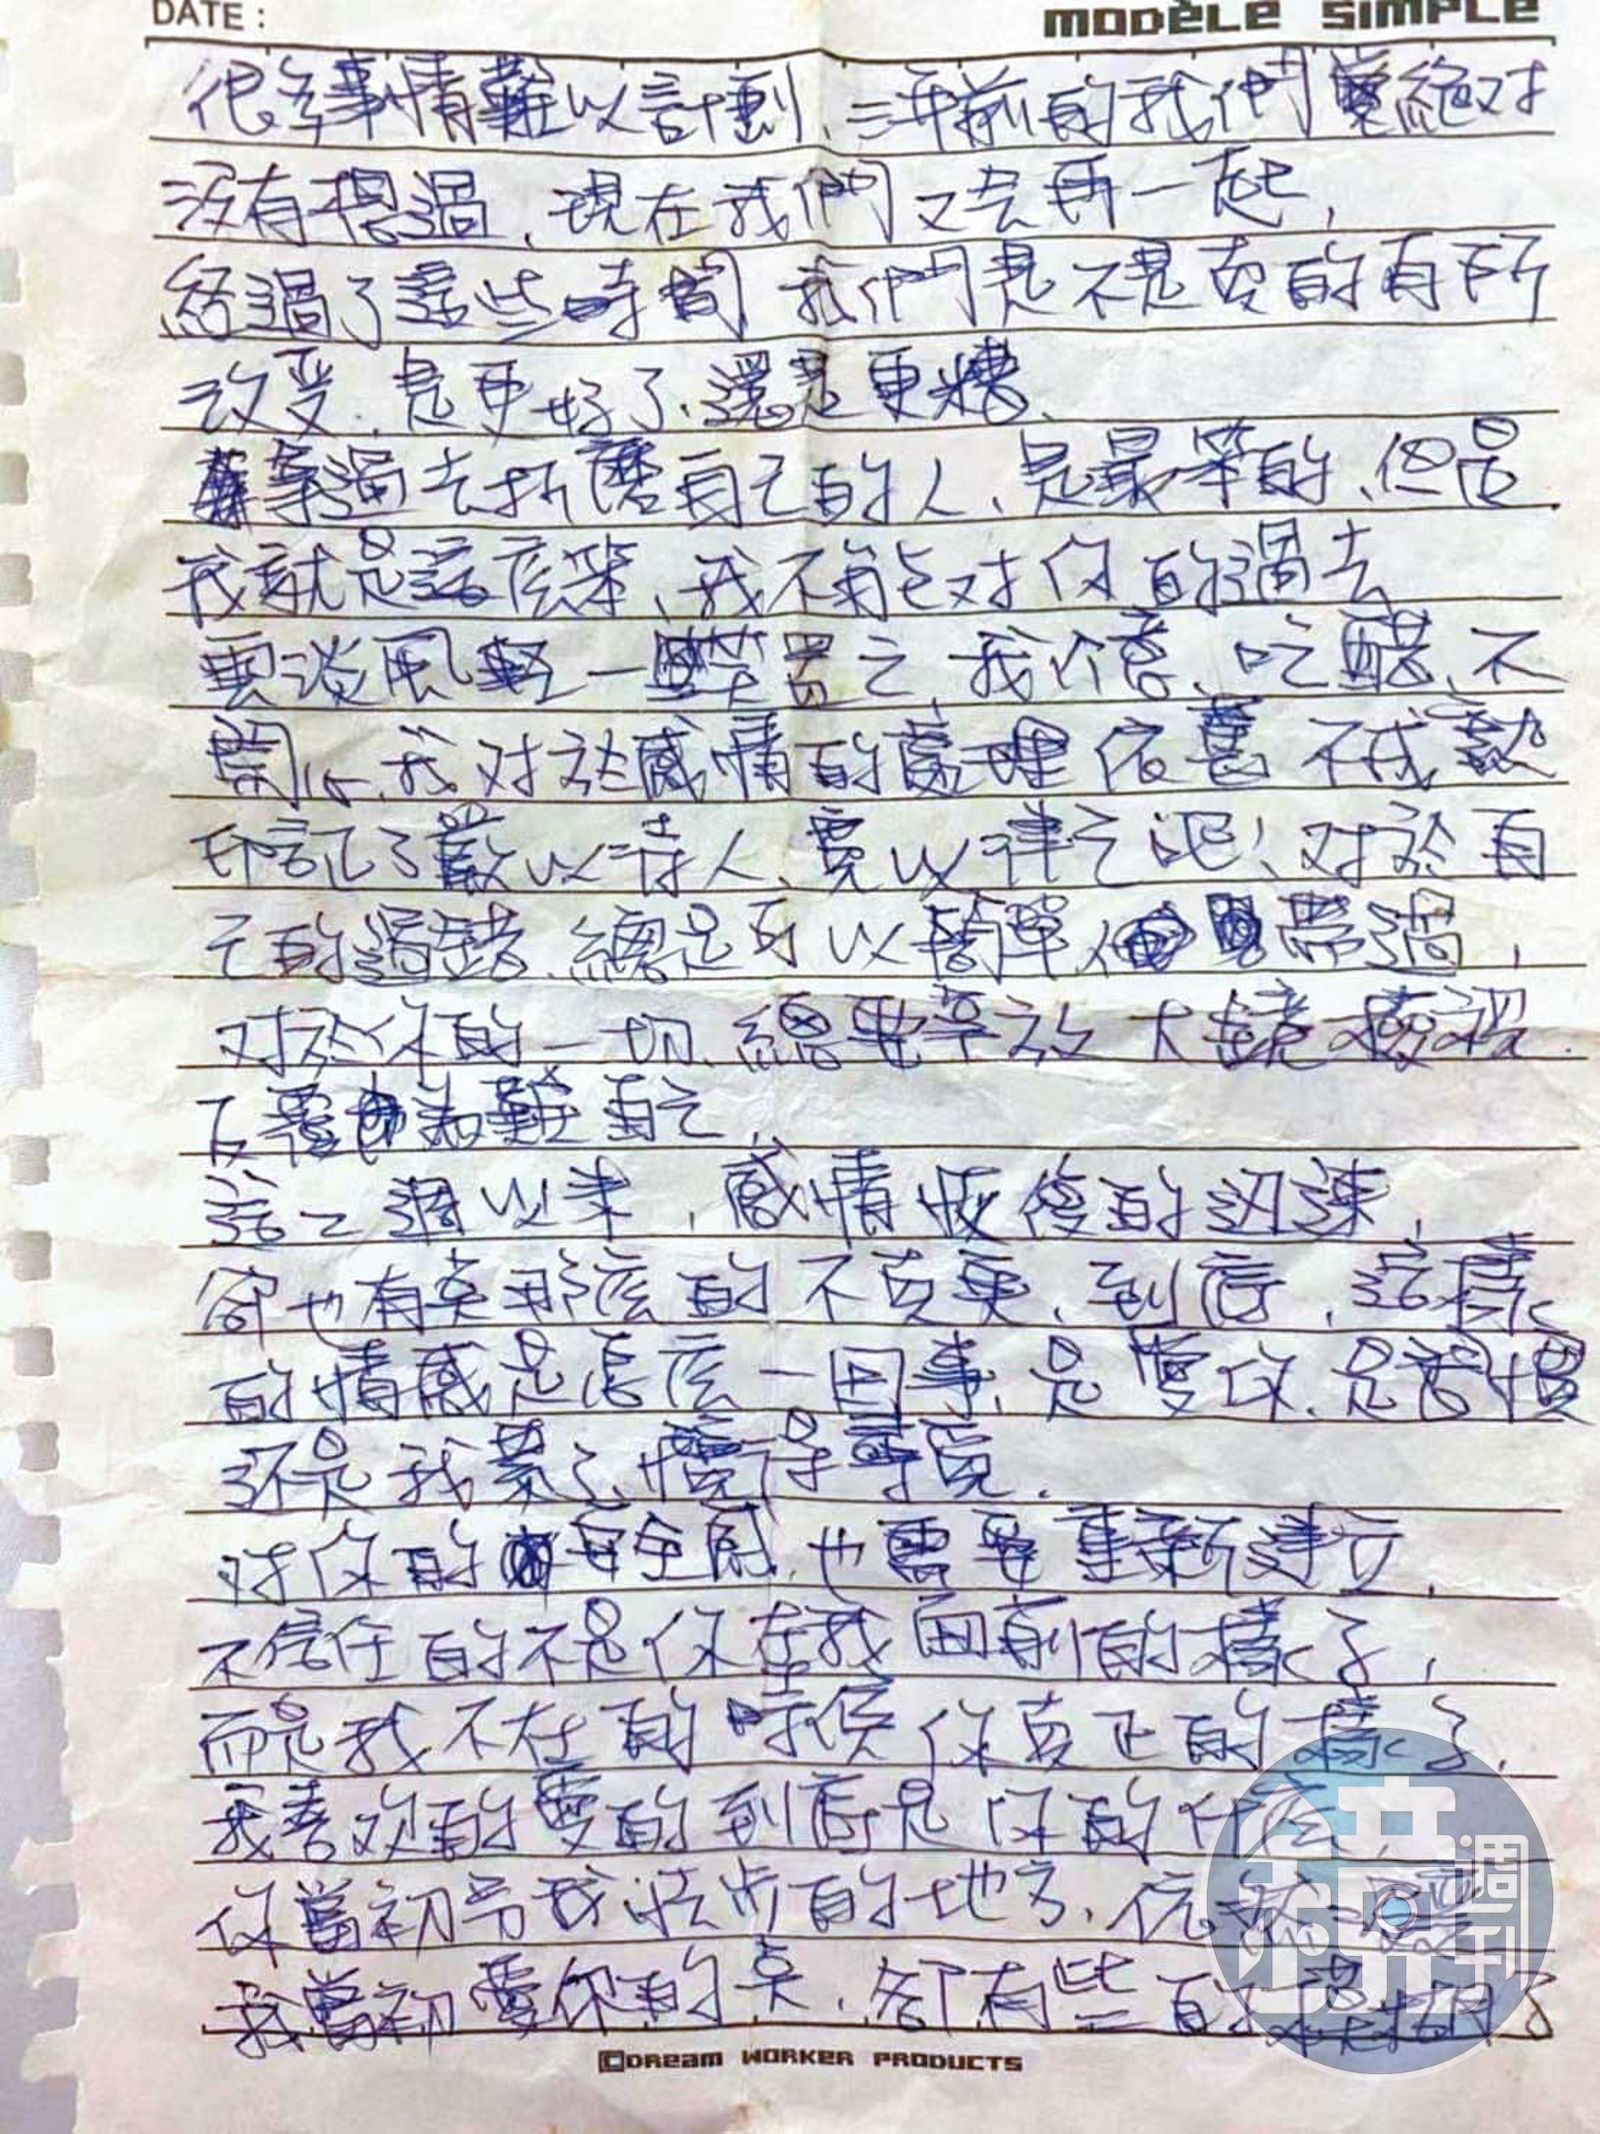 DATE:
MODÈLE SIMPLE
很多事情難以計劃、三年前的我們絕对
沒有想過、現在我們又会再一起,
經過了這些時間 我們是不是真的有所
改变.是更好了、還是更糟、
拿過去折磨自己的人、是最笨的、但是
我就是這么笨、我不能对你的過去
雲淡風輕一笑置之、我介意、吃醋、不
開心、我对於感情的處理依舊不成熟
忘了嚴以待人、寬以律己吧、对於自
己的過錯、總是可以簡單 帶過,
对於你的一切、總要拿放大鏡檢視.
反覆 為難自己,
這二週以來,感情恢復的迅速,
卻也有点那么的不真實、到底,這樣
的情感是怎么一回事、是爱你、是習慣
还是我累了、懶得
对你的 安全感,也需要重新建立,
不信任的不是你在我面前的樣子,
而是我不在的時候你真正的樣子,
我喜欢的爱的到底是你的什么、
你當初令我 的地方、
我當初愛你的点、都有些
©DREAM WORKER PRODUCTS
鏡週刊